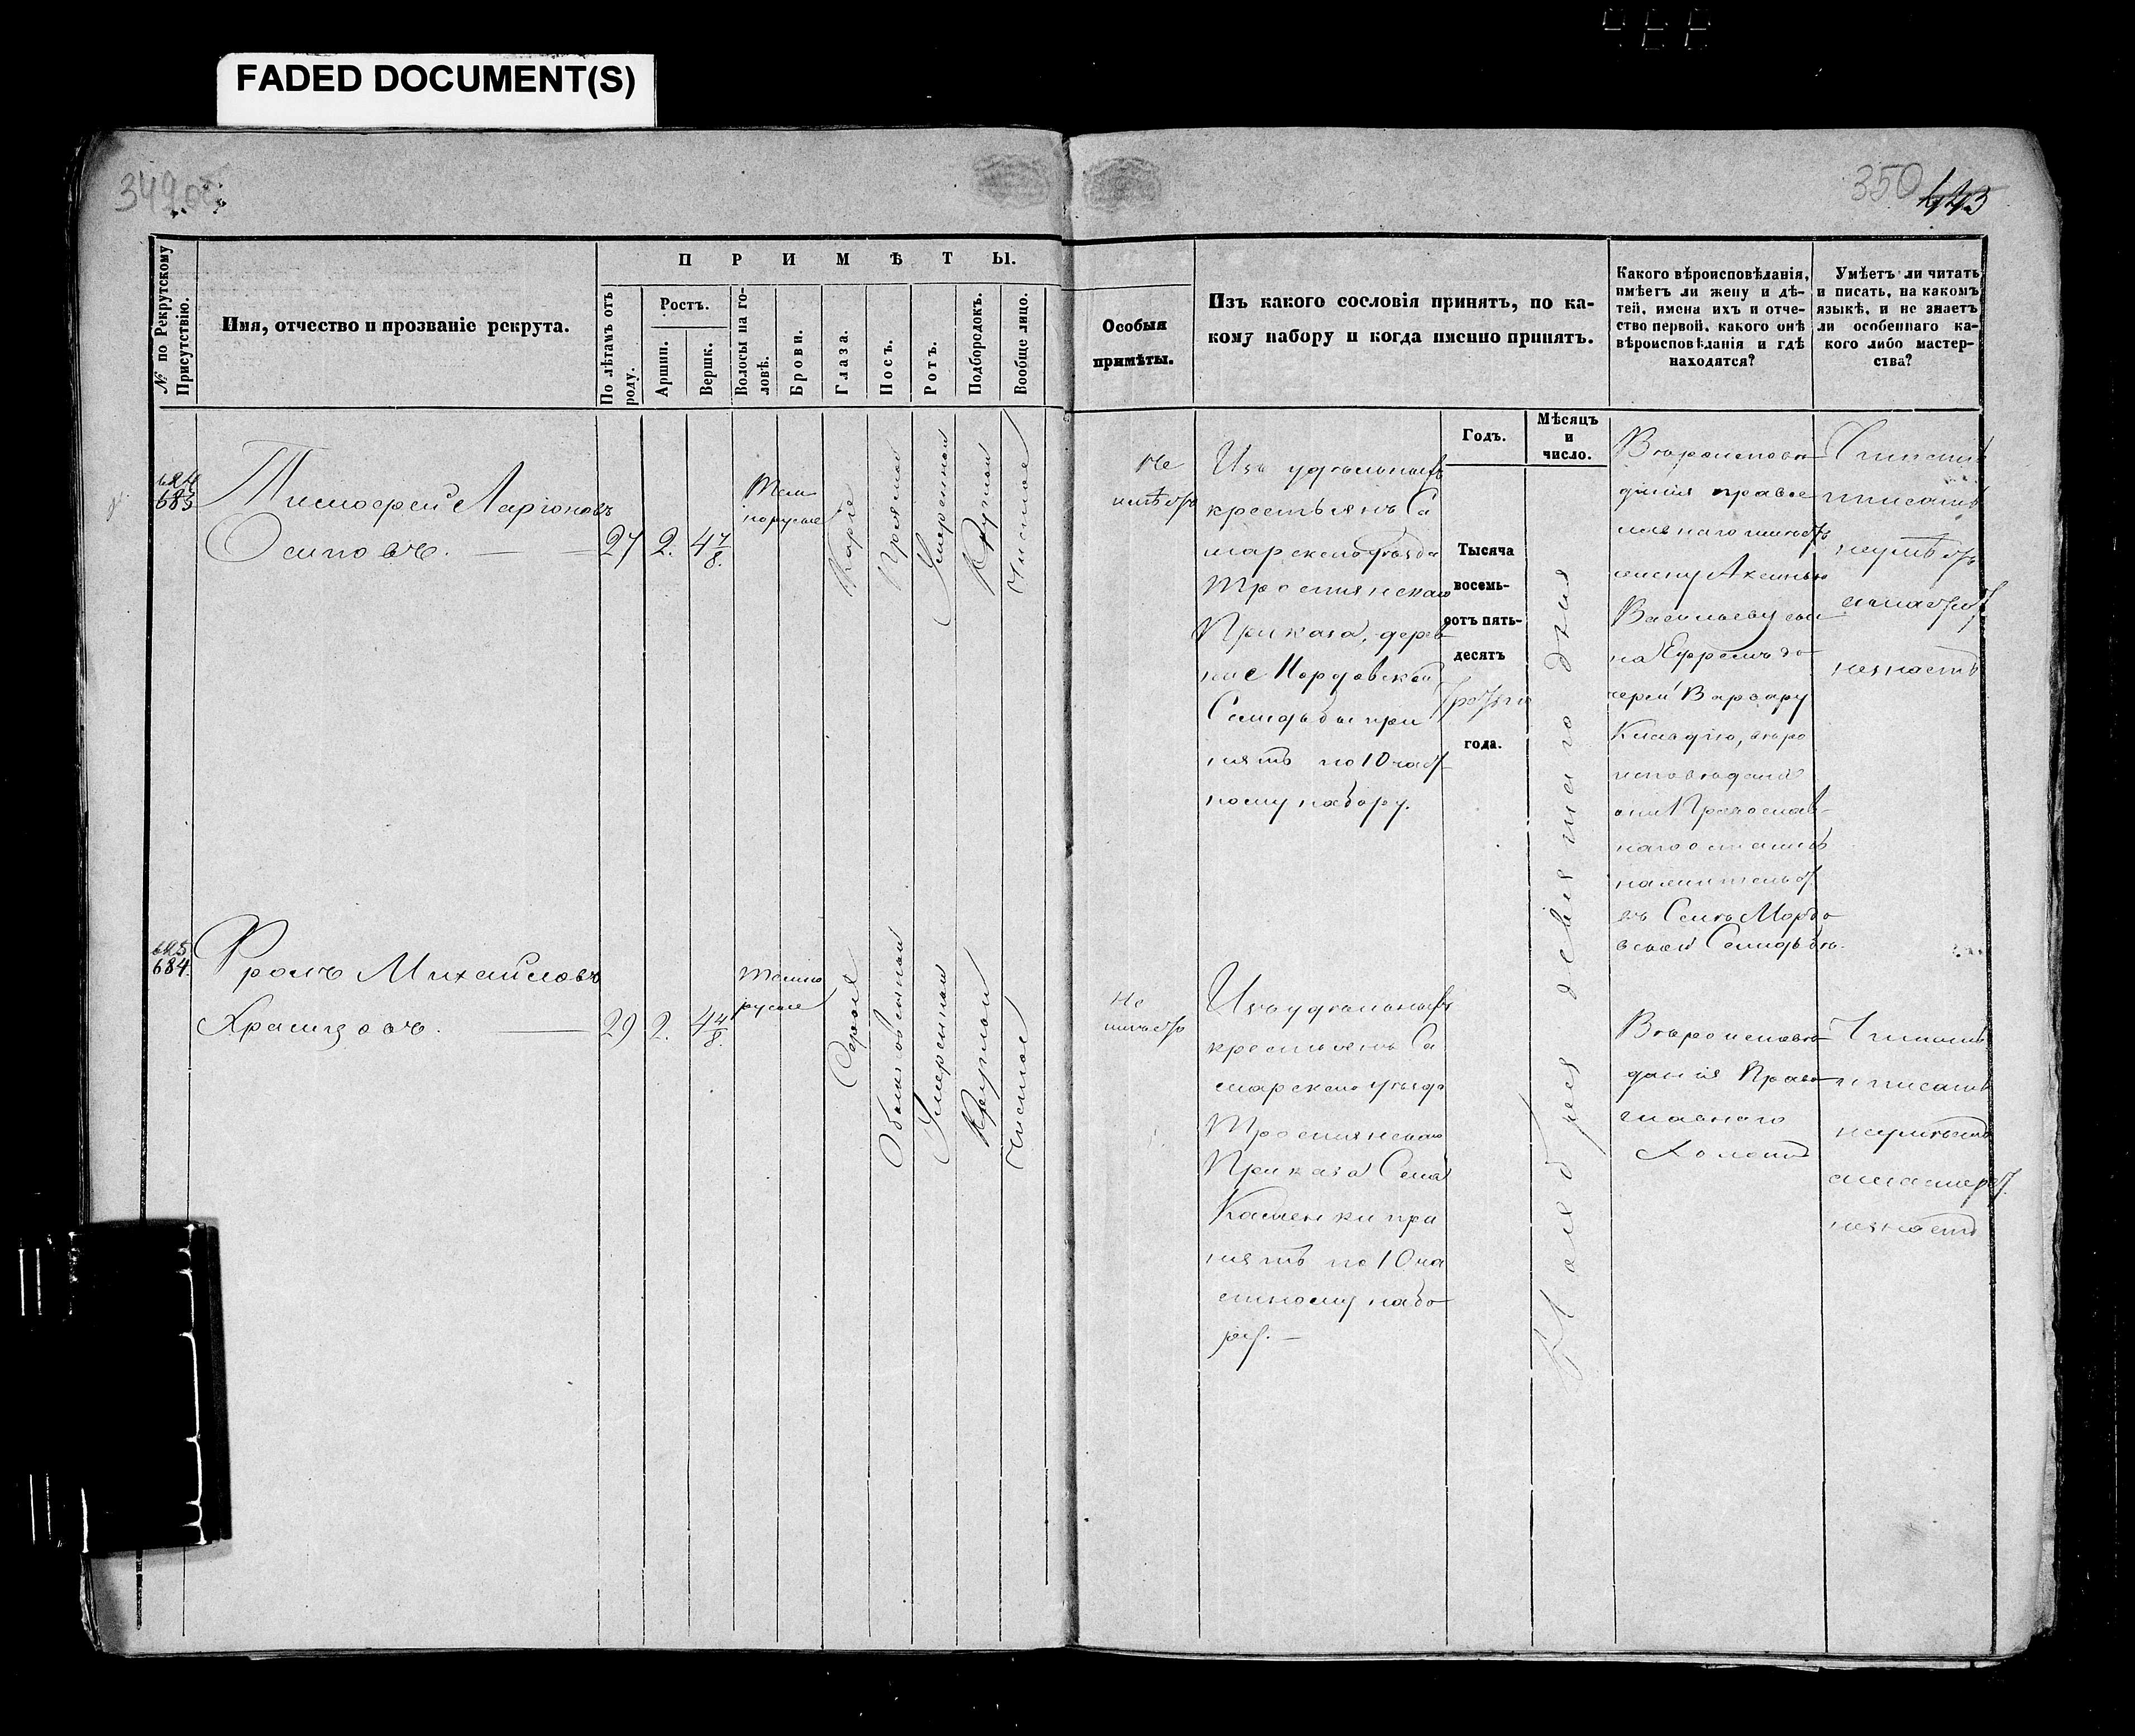 FADED DOCUMENT(S)
349 об
350
443
№ по Рекрутскому
Присутствію.
Имя, отчество и прозваніе рекрута.
ПРИМѢТЫ.
По лѣтамъ отъ
роду.
Ростъ.
Аршин.
Вершк.
Волосы на го-
ловѣ.
Брови.
Глаза.
Носъ.
Ротъ.
Подбородокъ.
Вообще лицо.
Особыя
примѣты.
Изъ какого сословія принятъ, по ка-
кому набору и когда именно принятъ.
Какого вѣроисповѣданія,
имѣетъ ли жену и дѣ-
тей, имена ихъ и отче-
ство первой, какого онѣ
вѣроисповѣданія и гдѣ
находятся?
Умѣетъ ли читать
и писать, на какомъ
языкѣ, и не знаетъ
ли особеннаго ка-
кого либо мастер-
ства?
Годъ.
Мѣсяцъ
и
число.
624
683
Тимофей Ларіоновъ
Осиповъ.
27
2.
4 7/8.
Тем-
норусые
Каріе
Прямой
Умеренной
Круглой
Чистое
Не
имѣетъ
Изъ удѣльныхъ
крестьянъ Са
марскаго уѣзда
Тростянскаго
Приказа, дерев
ни Мордовской
Селидьбы при
нятъ по 10 част
ному набору.
Тысяча
восемь-
сотъ пять-
десятъ
третьго
года.
Ноября девятаго дня
Вѣроисповѣ
данія правос
лавнаго имѣетъ
жену Аксинью
Васильеву сы
на Ефрема до
черей Варвару
Клавдію, вѣро
исповѣданія
они Православ-
наго
на жительст.
въ Селѣ Мордо
вской Селидьбѣ.
Читать
и писать
неумѣетъ
незнаетъ
625
684.
Фролъ Михайловъ
Храмцовъ.
29
2.
4 4/8.
Темно
русые
Серые
Обыкновенной
Умеренной
Круглой
Чистое
Не
имѣетъ
Изъ удѣльныхъ
крестьянъ Са
марскаго уѣзда
Тростянскаго
Приказа Села
Каменки при
нятъ по 10 ча
стному набо
ру.
Вѣроисповѣ
данія Право
славнаго
Холостъ
Читать
и писать
неумѣетъ
и мастер.
незнаетъ